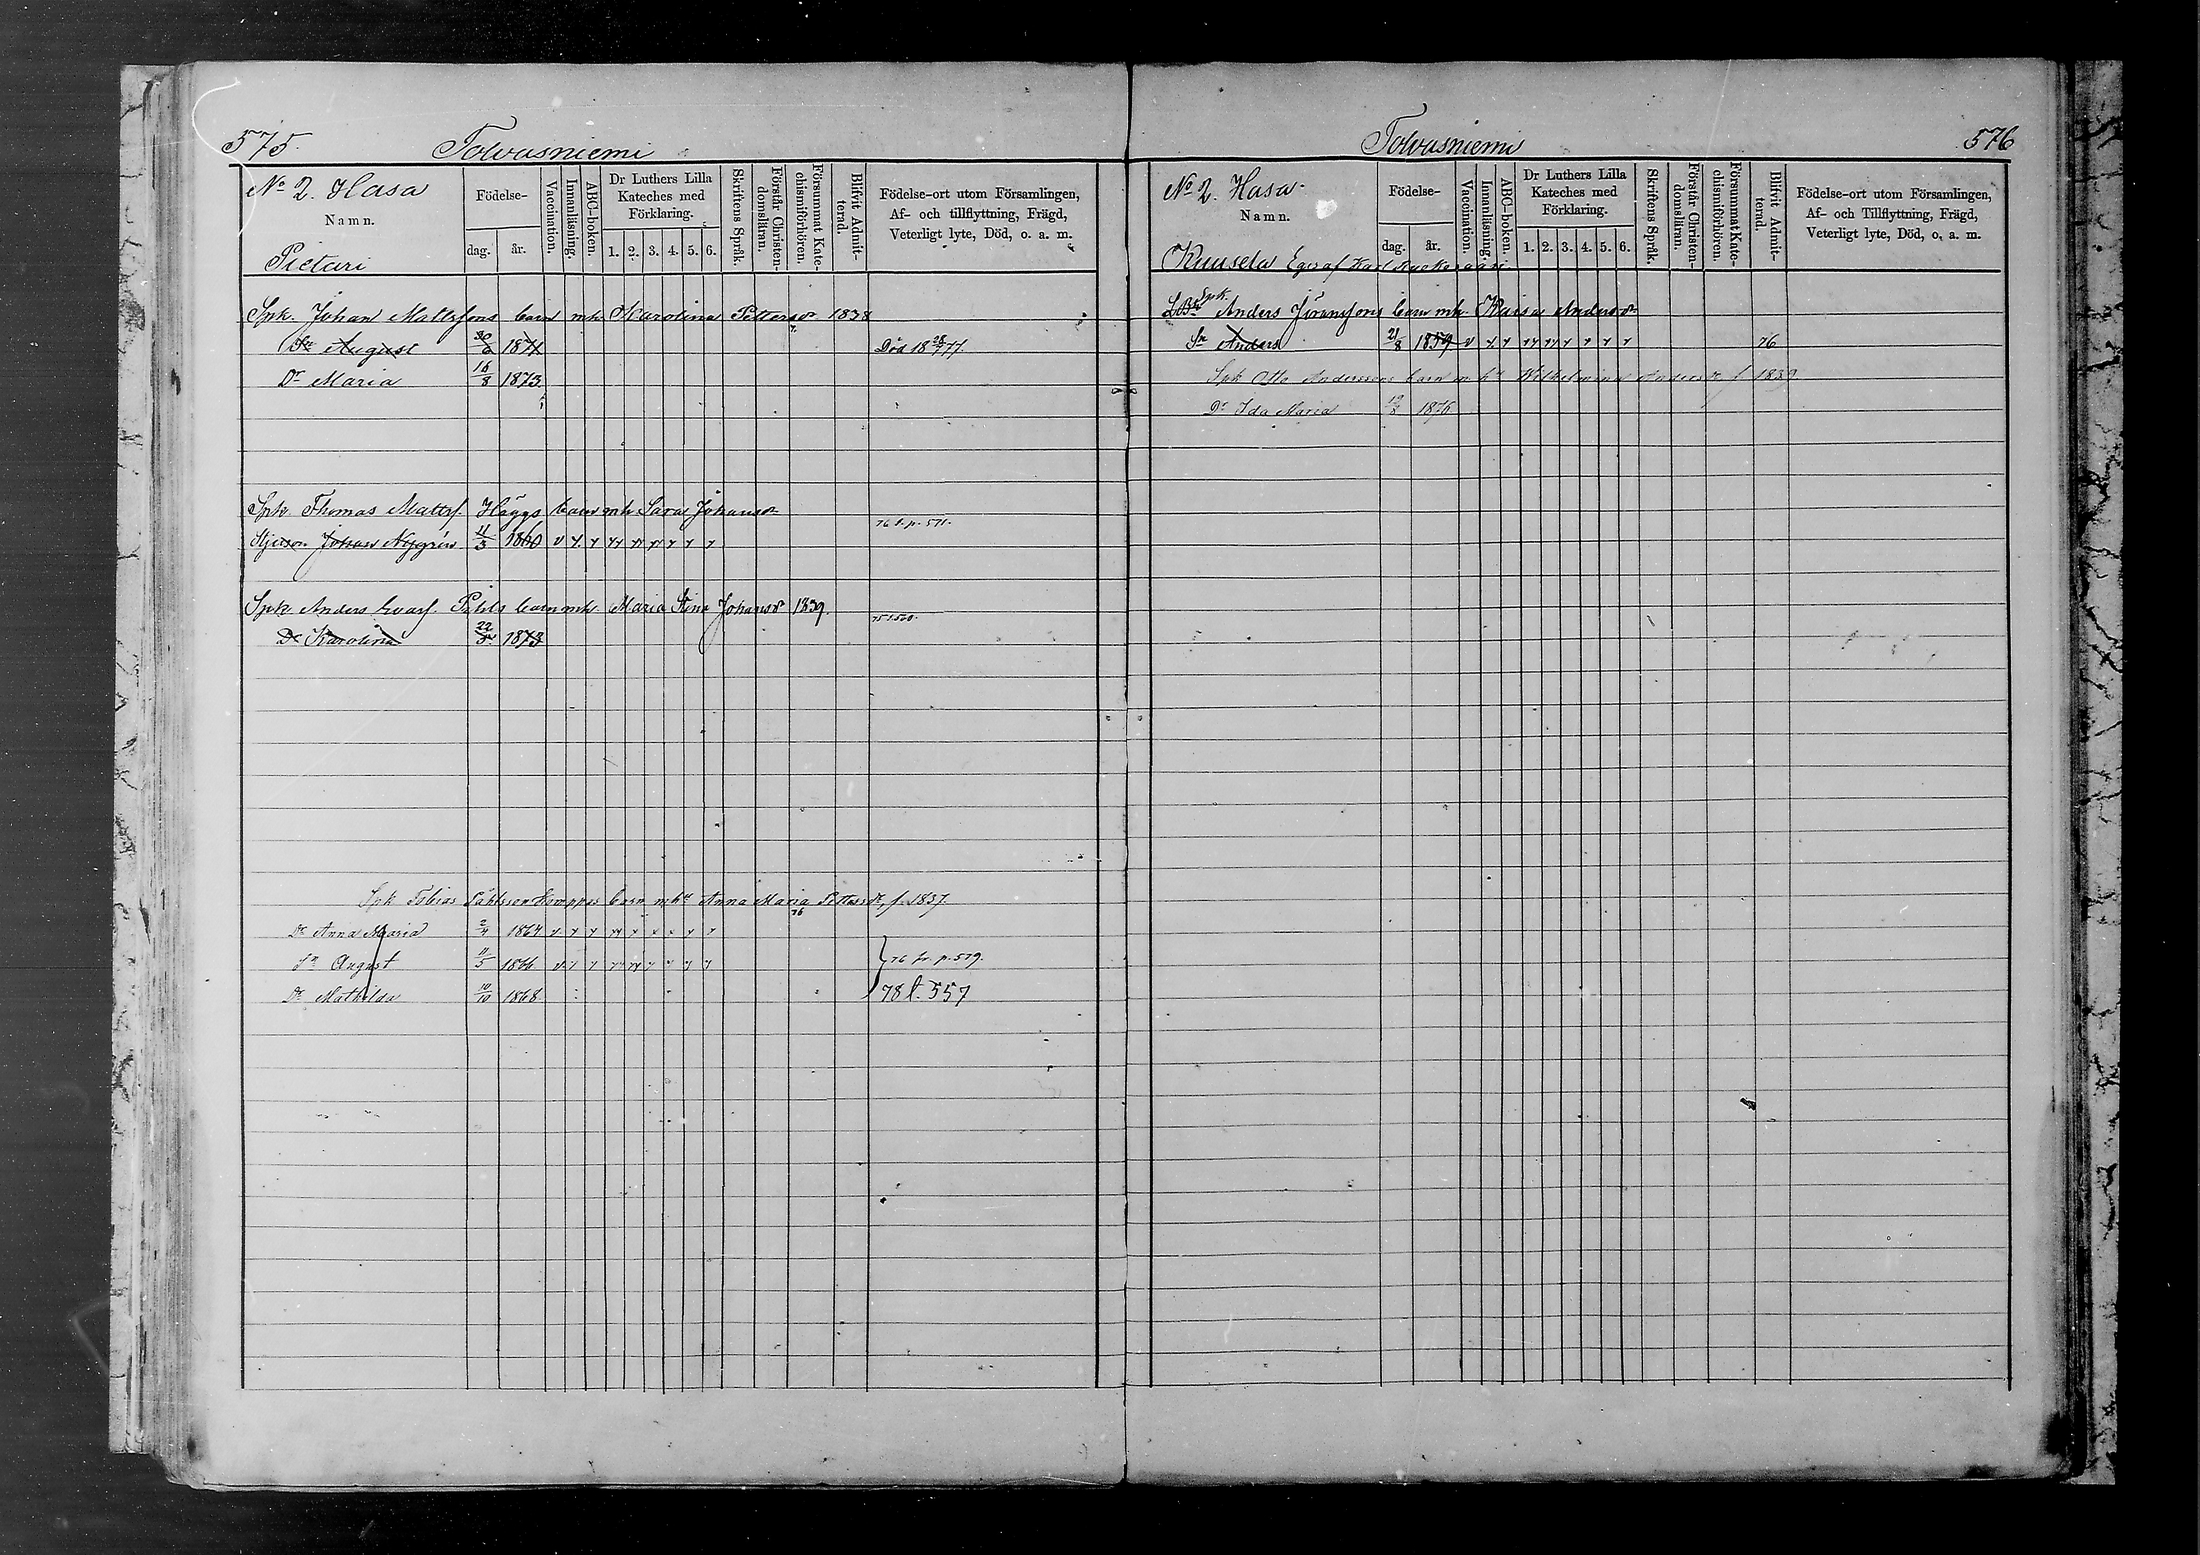 575.
Tolvasniemi
No 2. Hasa
Namn.
Pietari
Födelse-
dag. år.
Vaccination.
Innanläsning.
ABC-boken.
Dr Luthers Lilla
Kateches med
Förklaring.
1. 2. 3. 4. 5. 6.
Skriftens Språk.
Förstår Christen-
domsläran.
Försummat Kate-
chismiförhören.
Blifvit Admit-
terad.
Födelse-ort utom Församlingen,
Af- och tillflyttning, Frägd,
Veterligt lyte, Död, o. a. m.
Spk. Johan Mattssons barn mh. Karolina Pettersdr 1838
Sn August 30/6 1871 Död 18 28/7 77.
Dr Maria 16/8 1873
Spk. Thomas Mattsf. Häggs barn mh Sara Johansdr
Stjuson Johan Nygrén 11/3 1860 v y y yy yy yy y y y 76 t. p. 571.
Spk Anders barn mh. Maria Stina Johansdr 1839.
Dr Karolina 22/8 1873 75 t. 560.
Spk Tobias Påhlsson barn mhu Anna Maria Pettersdr, f. 1837.
76
Dr Anna Maria 2/4 1864
Sn August 11/5 1866 76 fr. p. 579.
Dr Mathilda 10/10 1868 78 t. 557
Tolvasniemi
576
No 2. Hasa
Namn.
Kuusela Eges af Karl
Födelse-
dag. år.
Vaccination.
Innanläsning.
ABC-boken.
Dr Luthers Lilla
Kateches med
Förklaring.
1. 2. 3. 4. 5. 6.
Skriftens Språk.
Förstår Christen-
domsläran.
Försummat Kate-
chismiförhören.
Blifvit Admit-
terad.
Födelse-ort utom Församlingen,
Af- och Tillflyttning, Frägd,
Veterligt lyte, Död, o. a. m.
Spk.
Anders Jöranssons barn mh. Kaisa Andersdr
Sn Anders 21/8 1859 v y y yy yy y y y y 76
Spk Otto Anderssons barn m hu Wilhelmina Andersdr f 1839
Dr Ida Maria 19/8 1876